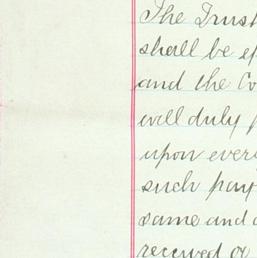 The Trust
shall be
and the Co
will duly
upon every
such pay
same and
received or